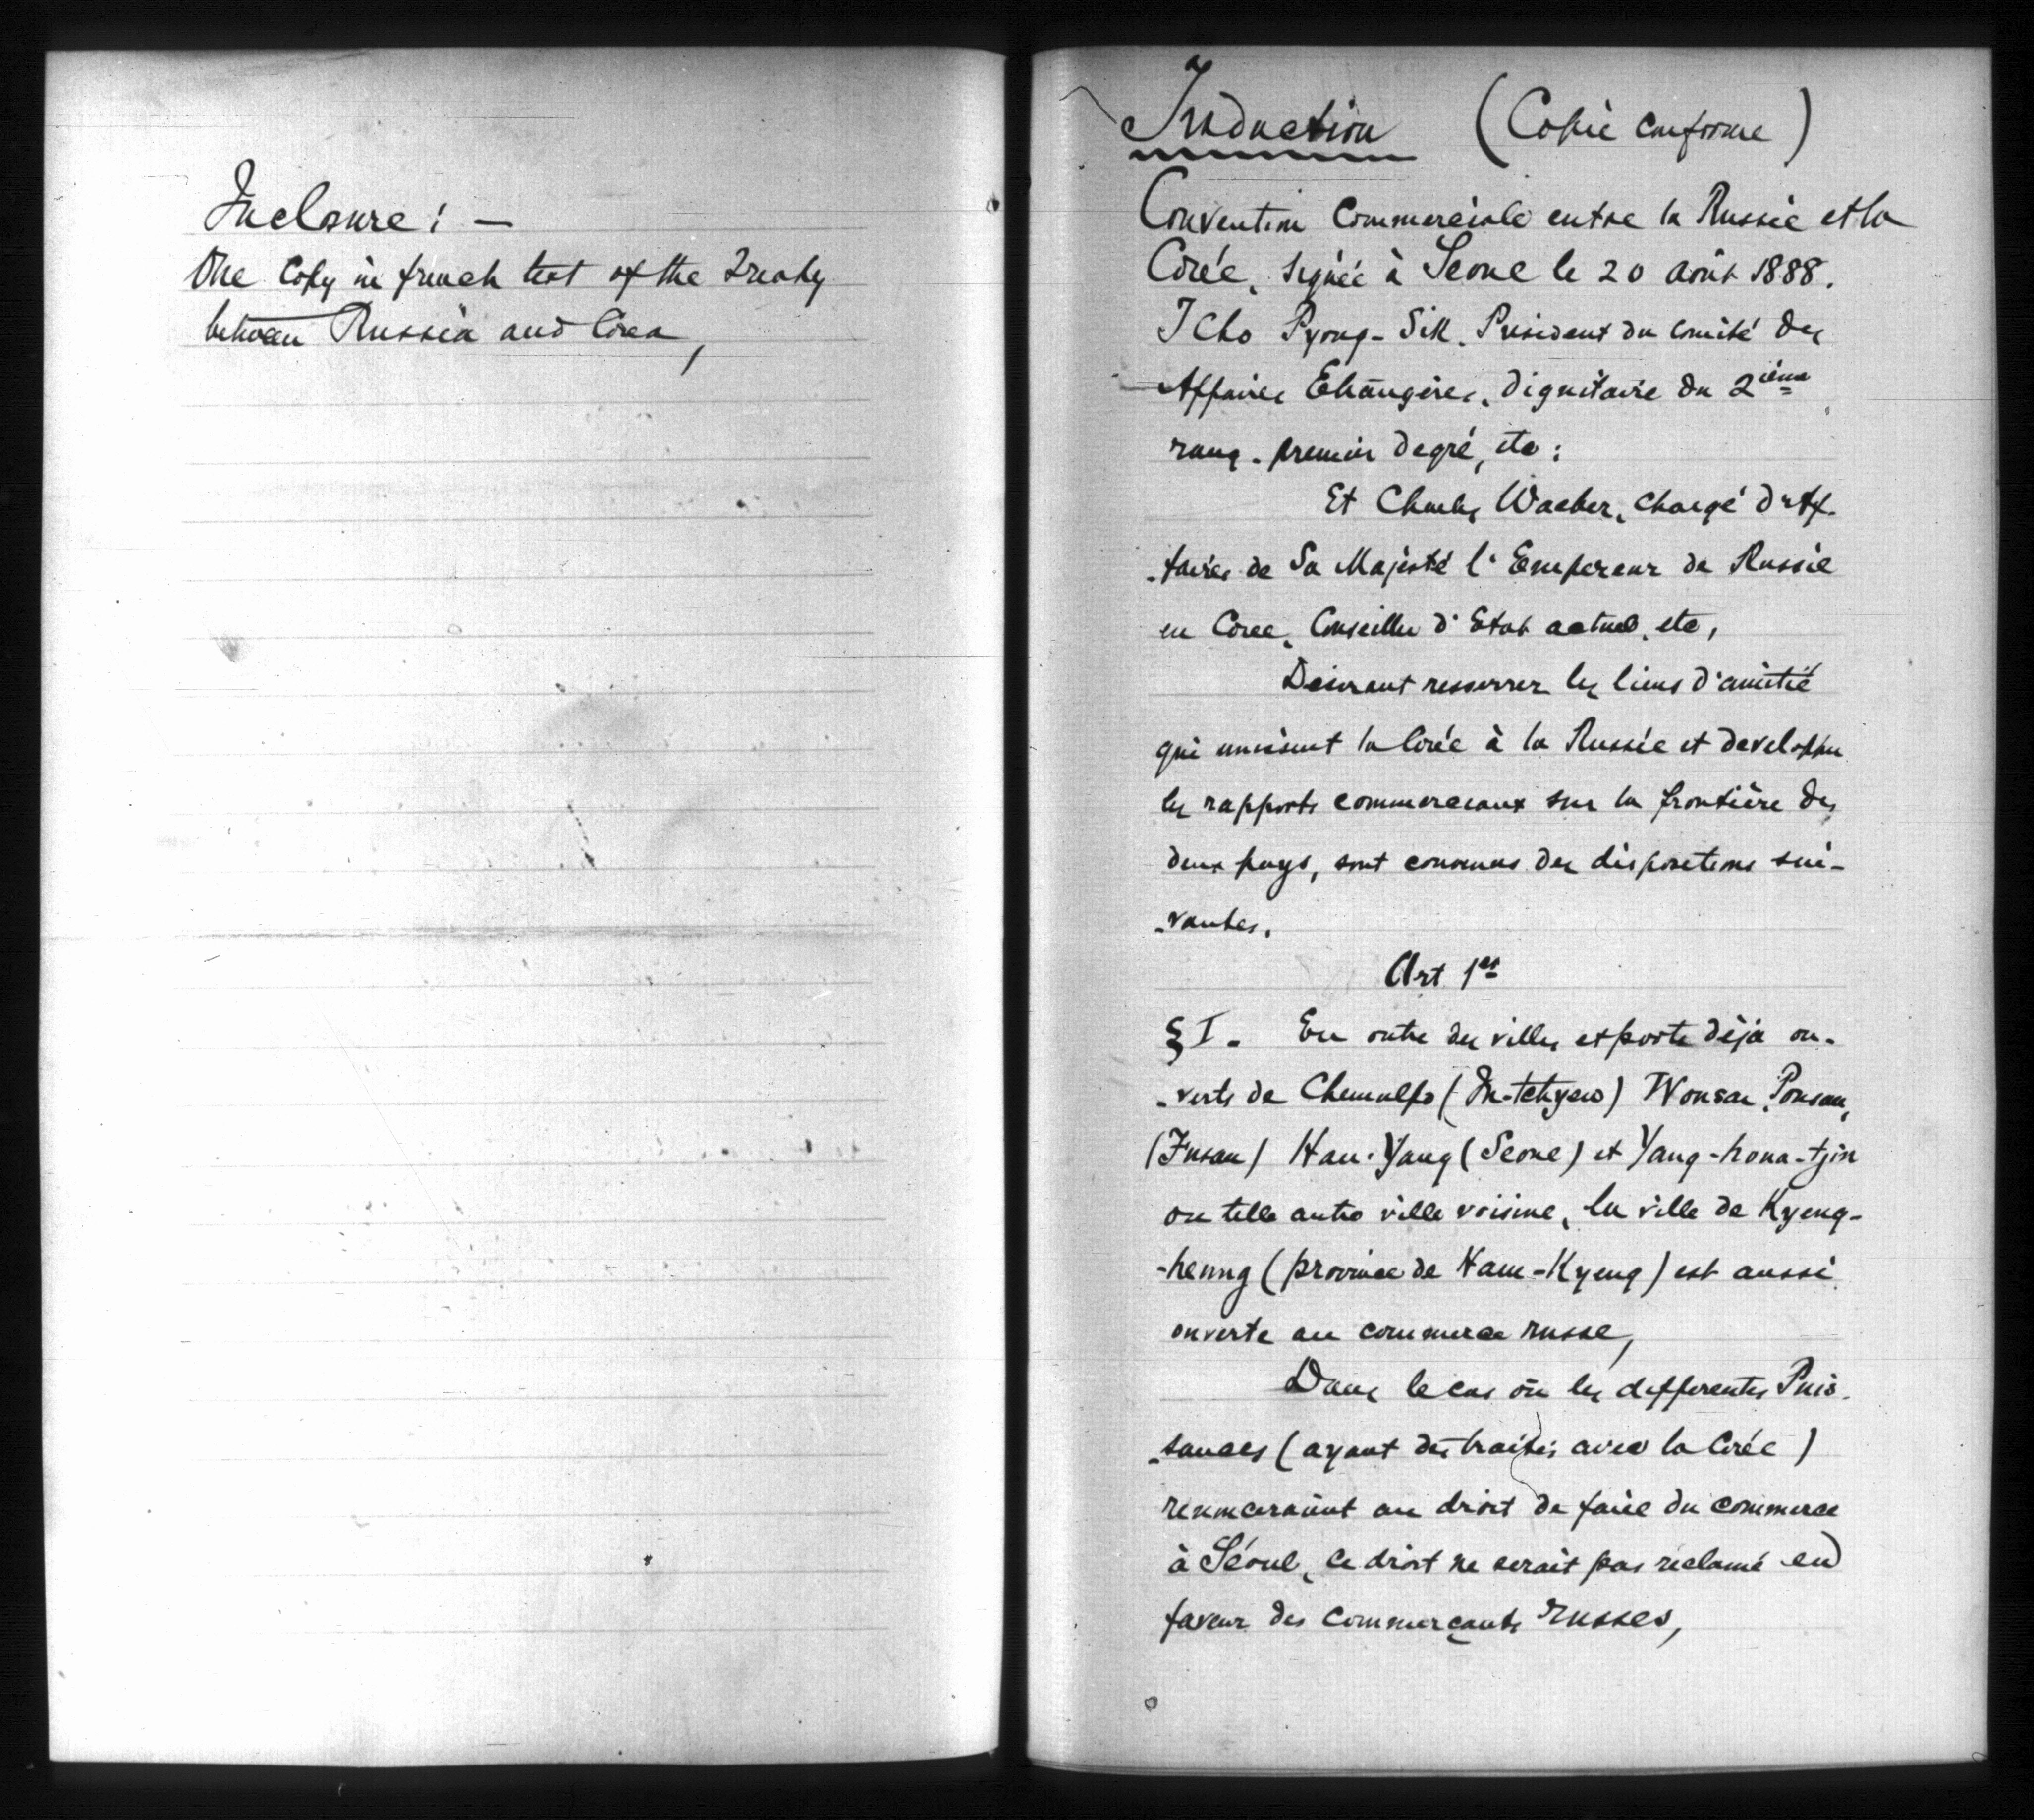 Inclosure: —
One Copy in french text of the Treaty
between Russia and Corea,
Traduction (Copie conforme)
Convention Commerciale entre la Russie et la
Corée, signée à Seoul le 20 août 1888.
Tcho Pyong-Sik. Président du Comité des
Affaires Etrangères, dignitaire du 2ième
rang - premier degré, etc:
Et Charles Waeber, chargé d'Af-
-faires de Sa Majesté l'Empereur de Russie
en Coree, Conseiller d'Etat actuel, etc,
Desirant resserrer les liens d'amitié
qui unissent la Corée à la Russie et developper
les rapports commerciaux sur la frontière des
deux pays, sont convenus des dispositions sui-
-vantes.
Art 1er
§ I - En outre des villes et ports déja ou-
-verts de Chemulpo (In-tchyen) Wonsan, Pousan,
(Fusan) Han-Yang (Seoul) et Yang-hona-tjin
ou telle autre ville voisine, la ville de Kyeng-
-heung (province de Ham-Kyeng) est aussi
ouverte au commerce russe,
Dans le cas où les differentes Puis-
-sances (ayant des traités avec la Corée)
renonceraient au droit de faire du commerce
à Séoul, ce droit ne serait pas réclamé en
faveur des commerçants russes,